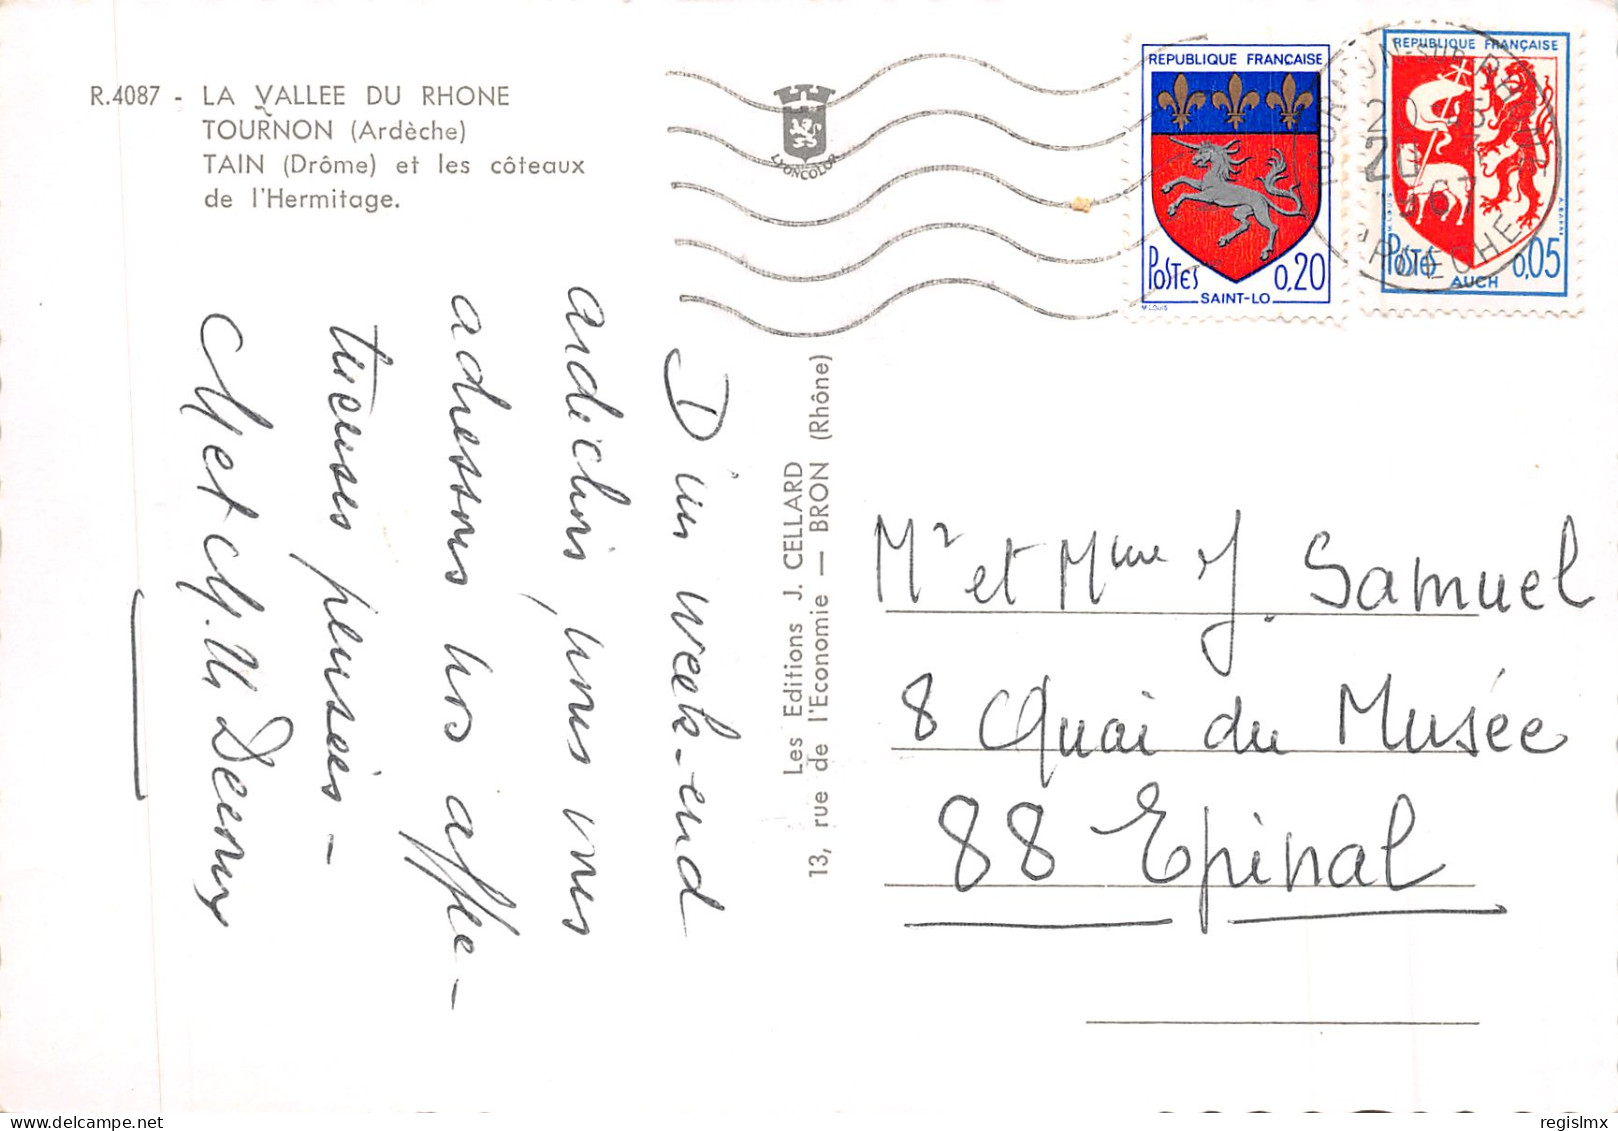 R.4087 - LA VALLEE DU RHONE
TOURNON (Ardèche)
TAIN (Drôme) et les côteaux
de l'Hermitage.
LYONCOLOR
REPUBLIQUE FRANÇAISE
POSTES 0,20
SAINT-LO
M LOUIS
REPUBLIQUE FRANÇAISE
POSTES 0,05
AUCH
TOURNON-SUR-RHONE
1967
ARDECHE
D'un week-end
ardéchois, nous vous
adressons nos affec-
tueuses pensées -
M et M.
Les Editions J. CELLARD
13, rue de l'Economie — BRON (Rhône)
Mr et Mme J. Samuel
8 Quai du Musée
88 Epinal
regislmx